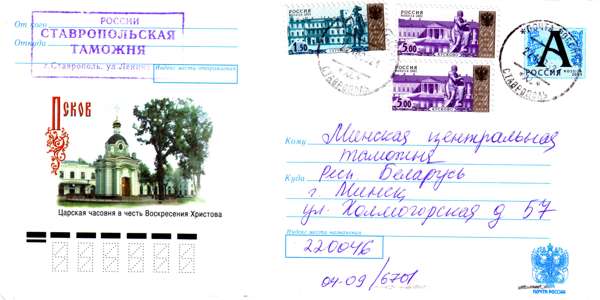 От кого
РОССИИ
СТАВРОПОЛЬСКАЯ
ТАМОЖНЯ
Откуда
г. Ставрополь, ул Ленин
Индекс места отправления
Псков
Царская часовня в честь Воскресения Христова
1.50
РОССИЯ
5.00
РОССИЯ
5.00
А
РОССИЯ
СТАВРОПОЛЬ
СТАВРОПОЛЬ
Кому Минская центральная
таможня
Куда Респ Беларусь
г. Минск
ул. Холмогорская д 57
Индекс места назначения
220046
04-09/6701
ПОЧТА РОССИИ